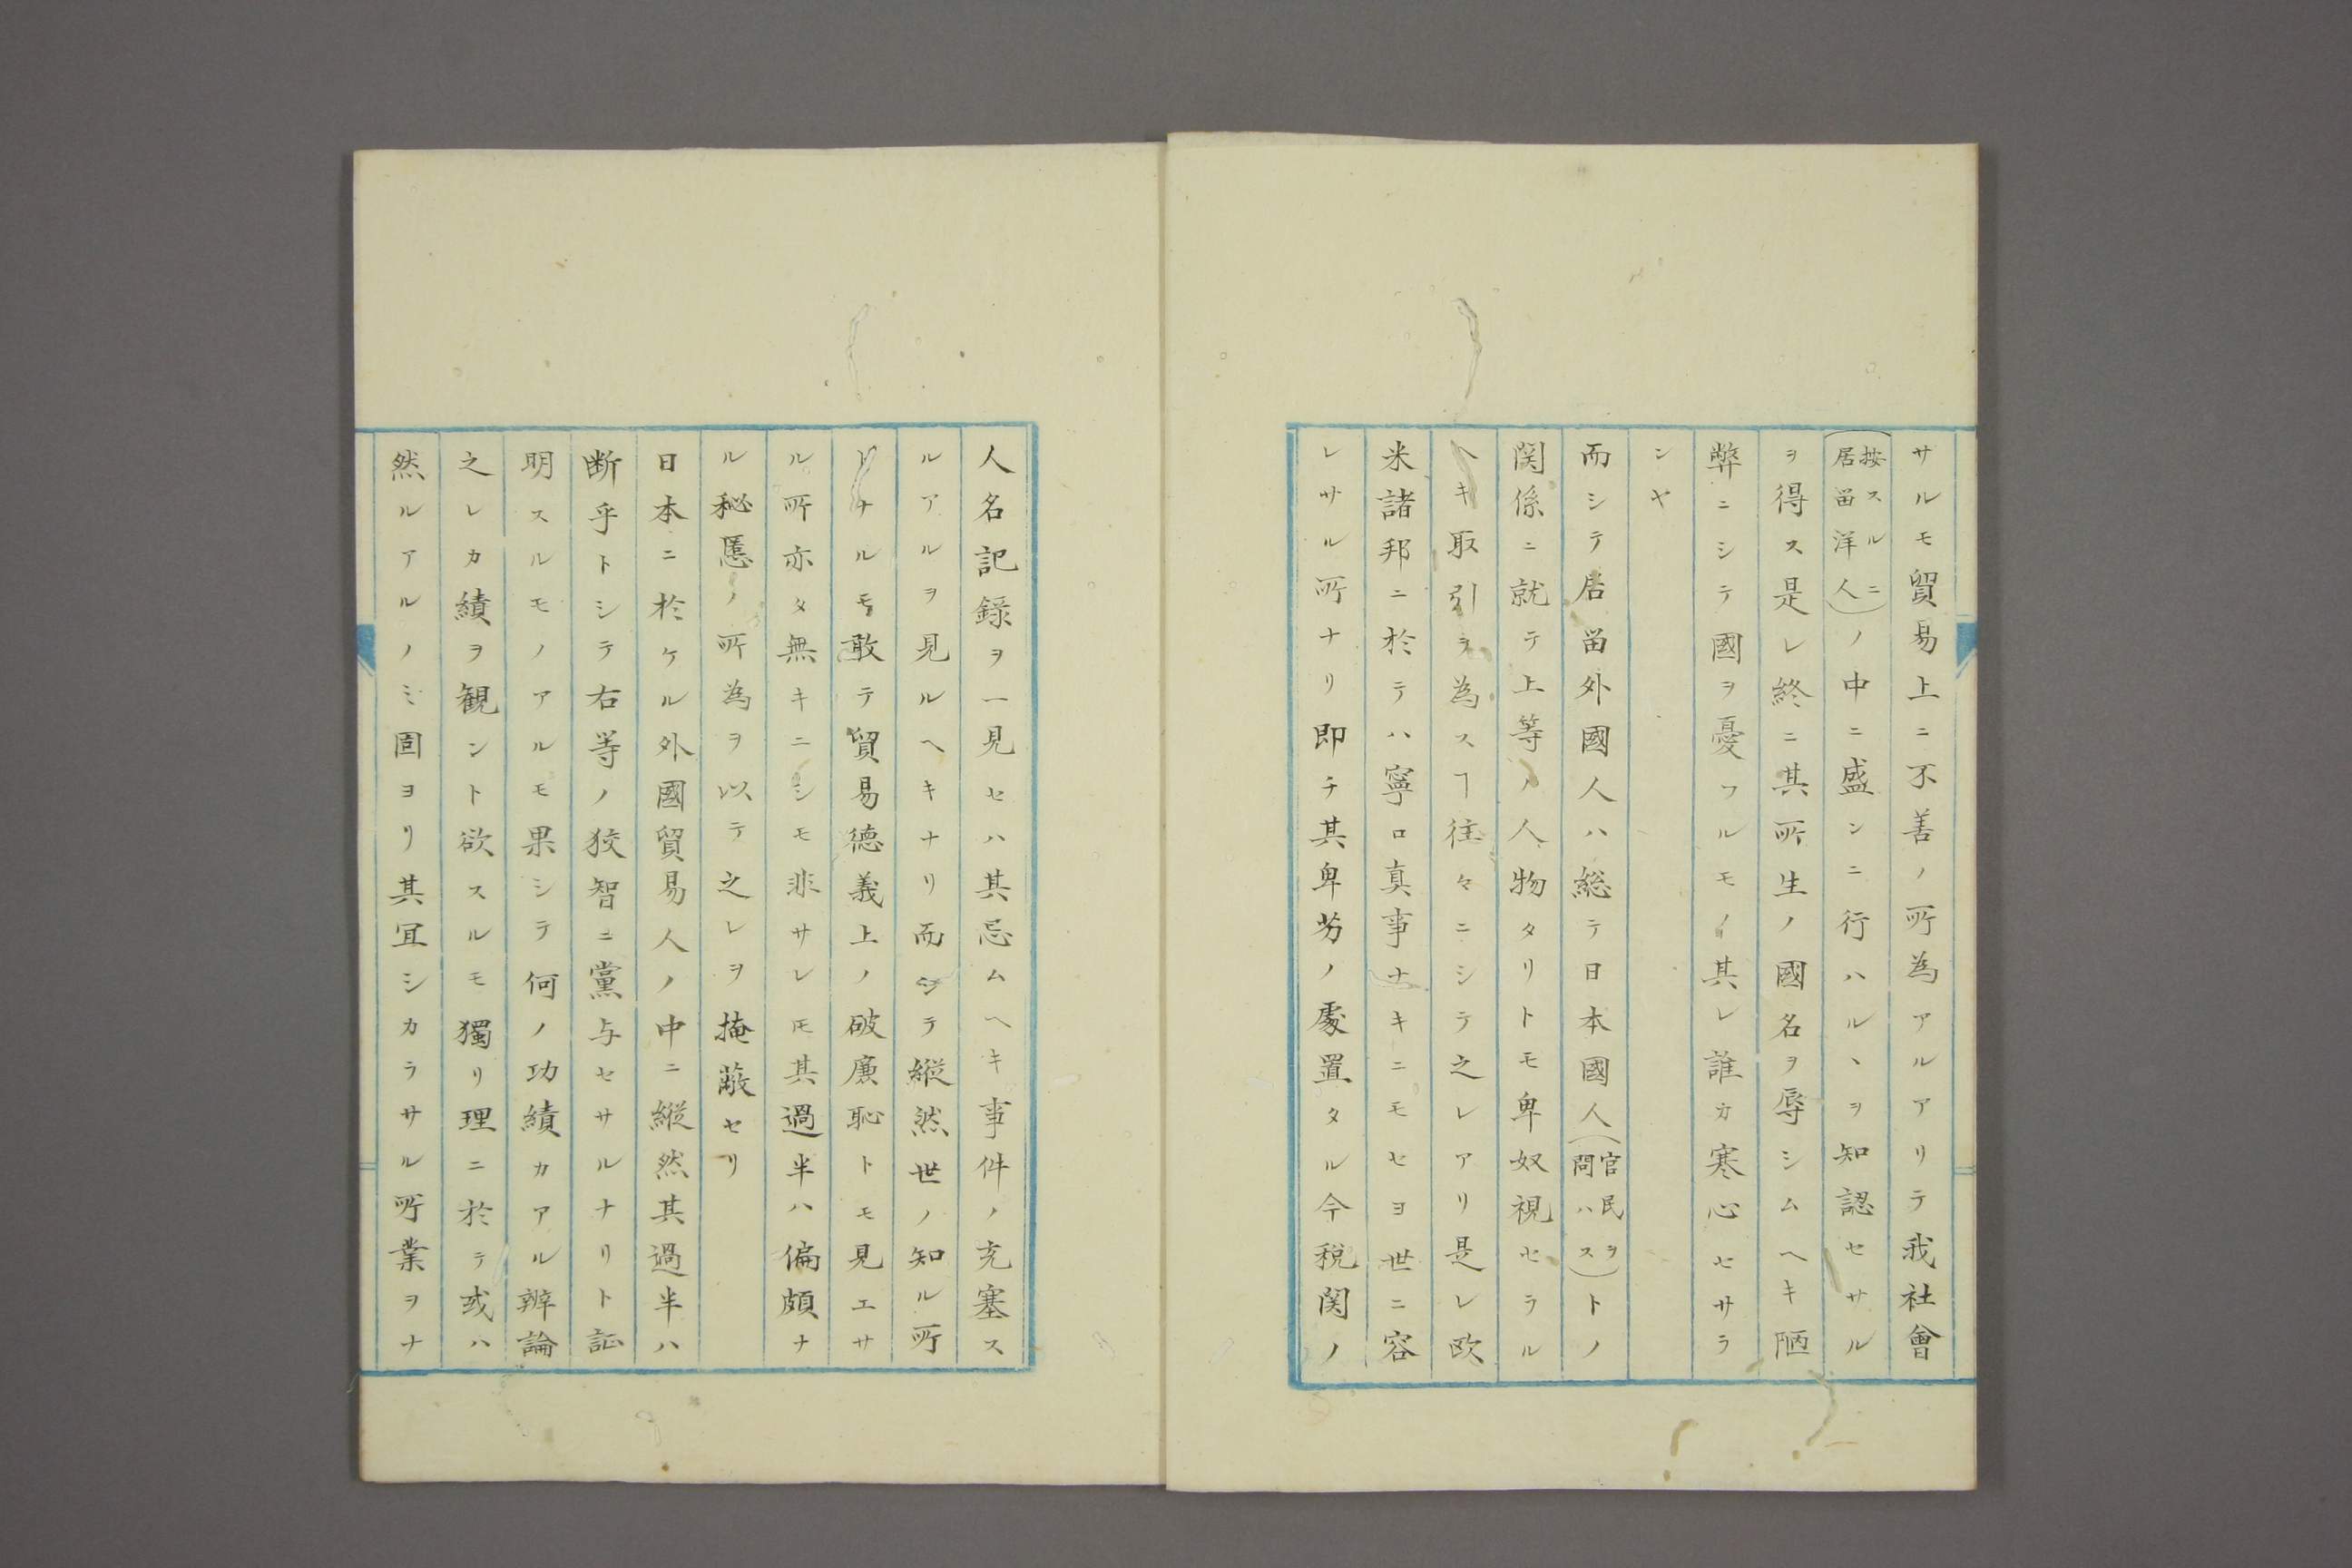 サルモ貿易上ニ不善ノ所為アルアリテ我社會
(按スルニ居留洋人)ノ中ニ盛ンニ行ハルヽヲ知認セサル
ヲ得ス是レ終ニ其所生ノ國名ヲ辱シムヘキ陋
弊ニシテ國ヲ憂フルモノ其レ誰カ寒心セサラ
ンヤ
而シテ居留外國人ハ総テ日本國人(官民ヲ問ハス)トノ
関係ニ就テ上等ノ人物タリトモ卑奴視セラル
ヘキ取引ヲ為スヿ往々ニシテ之レアリ是レ欧
米諸邦ニ於テハ寧ロ真事ナキニモセヨ世ニ容
レサル所ナリ即チ其卑劣ノ處置タル今税関ノ
人名記録ヲ一見セハ其忌ムヘキ事件ノ充塞ス
ルアルヲ見ルヘキナリ而シテ縦然世ノ知ル所
トナルモ敢テ貿易徳義上ノ破廉恥トモ見エサ
ル所亦タ無キニシモ非サレ𪜈其過半ハ偏頗ナ
ル秘慝ノ所為ヲ以テ之レヲ掩蔽セリ
日本ニ於ケル外國貿易人ノ中ニ縦然其過半ハ
断乎トシテ右等ノ狡智ニ黨与セサルナリト証
明スルモノアルモ果シテ何ノ功績カアル辨論
之レカ績ヲ観ント欲スルモ獨リ理ニ於テ或ハ
然ルアルノミ固ヨリ其冝シカラサル所業ヲナ